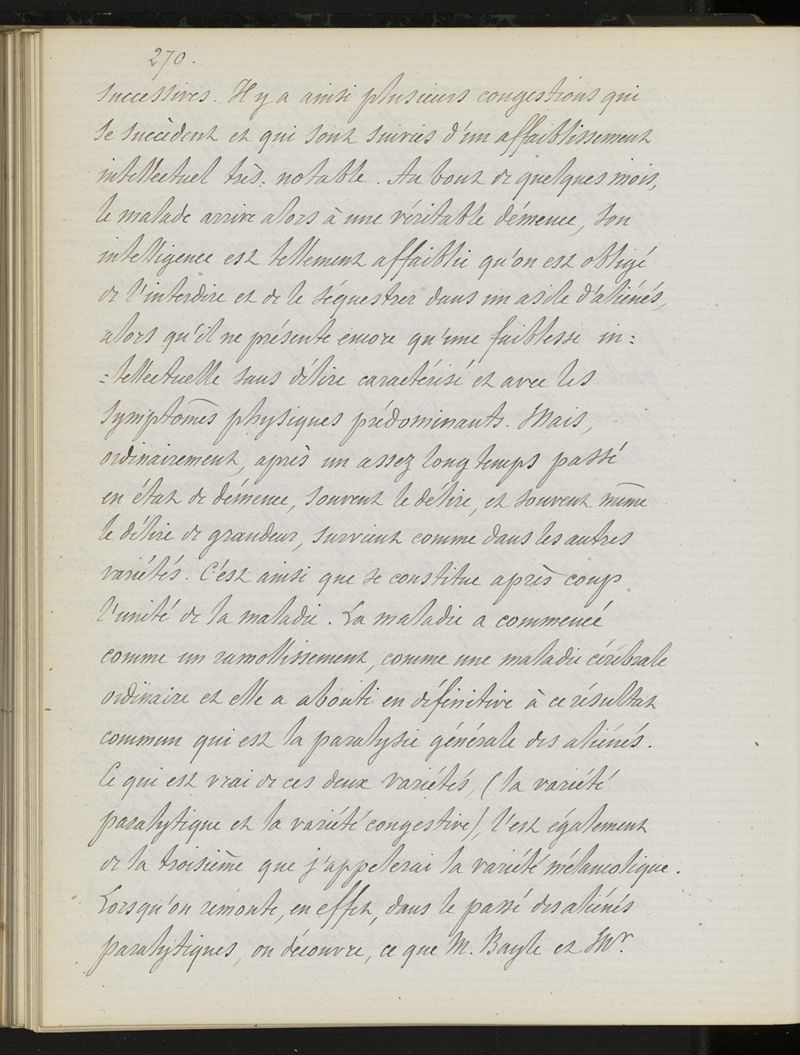 270.
successives. Il y a ainsi plusieurs congestions qui
se succèdent et qui sont suivies d'un affaiblissement
intellectuel très-notable. Au bout de quelques mois,
le malade arrive alors à une véritable démence, son
intelligence est tellement affaiblie qu'on est obligé
de l'interdire et de le séquestrer dans un asile d'aliénés,
alors qu'il ne présente encore qu'une faiblesse in=
=tellectuelle sans délire caractérisé et avec les
symptômes physiques prédominants. Mais,
ordinairement, après un assez long temps passé
en état de démence, souvent le délire, et souvent même
le délire de grandeur, survient comme dans les autres
variétés. C'est ainsi que se constitue après coup
l'unité de la maladie. La maladie a commencé
comme un ramollissement, comme une maladie cérébrale
ordinaire et elle a abouti en définitive à ce résultat
commun qui est la paralysie générale des aliénés.
Ce qui est vrai de ces deux variétés, (la variété
paralytique et la variété congestive), l'est également
de la troisième que j'appelerai la variété mélancolique.
Lorsqu'on remonte, en effet, dans le passé des aliénés
paralytiques, on découvre, ce que M. Bayle et Mr.